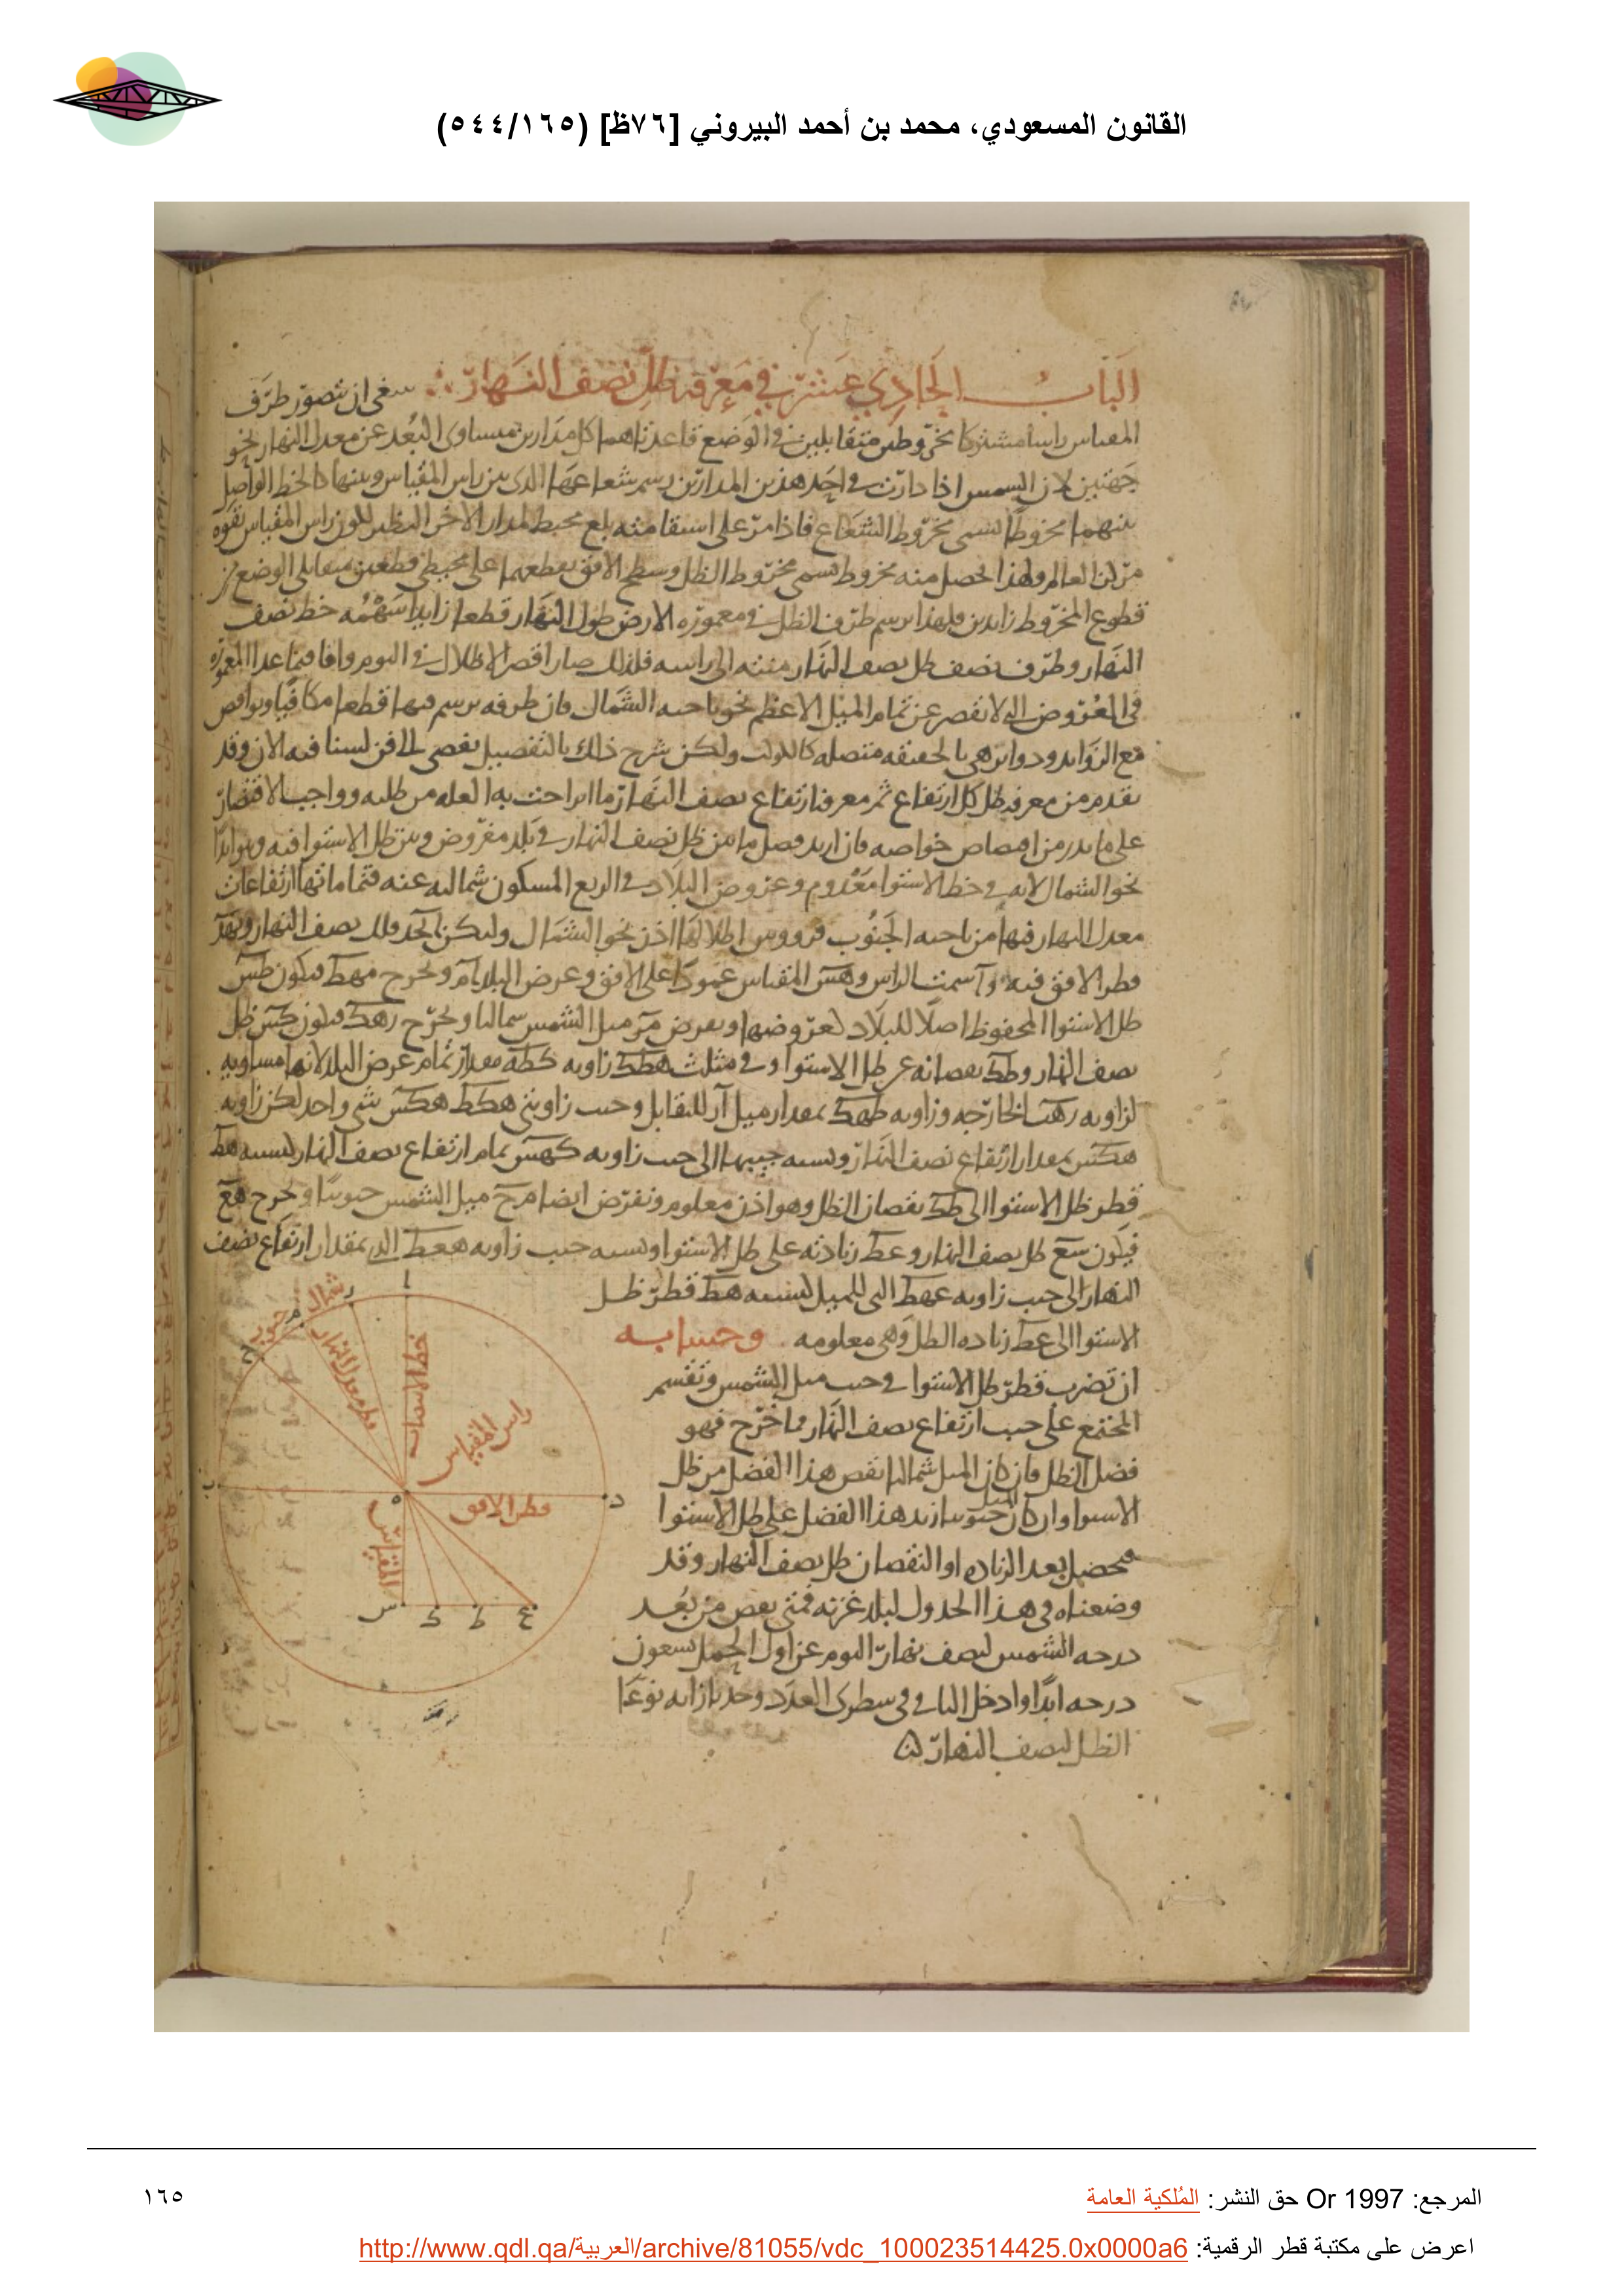 القانون المسعودي، محمد بن أحمد البيروني [٧٦ظ] (٥٤٤/١٦٥)
الباب الحادي عشر في معرفة ظل نصف النهار ∴ ىىىغى ان نتصور طرف
المقياس راسا مشتركا لمخروطين متقابلين في الوضع قاعدتاهما كل مدارين متساوى البعد عن معدل النهار نحو
جهتين لان الشمس اذا دارت في احد هذين المدارين رسم شعاعها الذى بين راس المقياس وبينها كالخط الواصل
بينهما مخروطا يسمى مخروط الشعاع فاذا مر على استقامته بلغ محيط المدار الاخر النظير لكون راس المقياس بقوة
مركز العالم ولهذا يحصل منه مخروط يسمى مخروط الظل وسطح الافق يقطعهما على محيطى قطعين متقابلى الوضع من
قطوع المخروط زايدين فلهذا يرسم طرف الظل في معمورة الارض طول النهار قطعا زايدا سهمه خط نصف
النهار وطرف نصف ظل نصف النهار منته الى راسه فلذلك صار اقصر الاظلال في اليوم واما فيما عدا المعمورة
في العروض التى لا تقصر عن تمام الميل الاعظم نحو ناحية الشمال فان طرفه يرسم فيها قطعا مكافيا ونواقص
مع الزوايد ودواير هى بالحقيقة متصلة ولكن شرح ذلك بالتفصيل يفضى الى فن لسنا فيه الان وقد
تقدم من معرفة ظل كل ارتفاع ثم معرفة ارتفاع نصف النهار ما ازاحت به العلة من طلبه وواجب الاقتصار
على ما يدر من اقتصاص خواصه فان اريد فصل ما بين ظل نصف النهار في بلد مفروض وبين ظل الاستوا فيه وهو ابدا
نحو الشمال لانه في خط الاستوا معدوم وعروض البلاد في الربع المسكون شمالية عنه فتماماتها ارتفاعات
معدل النهار فيها من ناحية الجنوب فرووس اظلالها اذن نحو الشمال وليكن ابجد فلك نصف النهار وبهد
قطر الافق فيه وا سمت الراس وهس المقياس عمودا على الافق وعرض البلد ام ونخرج مهط فيكون طس
ظل الاستوا المحفوظ اصلا للبلاد لعروضها ونفرض مر ميل الشمس شماليا ونخرج رهك فيكون كس ظل
نصف النهار وطك نقصانه عن ظل الاستوا وفي مثلث هطك زاويه كطه مقدار تمام عرض البلد لانها مساوية
لزاويه رهب الخارجه وزاويه طهك بمقدار ميل ار للتقابل وجيب زاويتى هكط هكس شى واحد لكن زاويه
هكس بمقدار ارتفاع نصف النهار ونسبه جيبها الى جيب زاويه كهس تمام ارتفاع نصف النهار كنسبه هط
قطر ظل الاستوا الى طك نقصان الظل وهو اذن معلوم ونفرض ايضا مح ميل الشمس جنوبيا ونخرج حهع
فيكون سع ظل نصف النهار وعط زيادته على ظل الاستوا ونسبه جيب زاويه هعط التى بمقدار ارتفاع نصف
النهار الى جيب زاويه عهط التى للميل كنسبه هط قطر ظل
الاستوا الى عط زياده الظل وهى معلومه وحسابه
ان نضرب قطر ظل الاستوا في جيب ميل الشمس ونقسم
المجتمع على جيب ارتفاع نصف النهار فما خرج فهو
فضل الظل فان كان الميل شماليا نقص هذا الفضل من ظل
الاستوا وان كان الميل جنوبيا زيد هذا الفضل على ظل الاستوا
فيحصل بعد الزياده او النقصان ظل نصف النهار وقد
وضعناه في هذا الجدول لبلد غزنه فمتى نقص من بعد
درجه الشمس لنصف نهار اليوم عن اول الحمل تسعون
درجه ابدا وادخل الباقى في سطرى العدد وجد بازايه نوعا
الظل لنصف النهار
شمال
جنوب
قطر معدل النهار
خط الانتصاب
راس المقياس
قطر الافق
المقياس
ا
ر
م
ح
ب
ه
د
س ك ط ع
المرجع: Or 1997 حق النشر: المُلكية العامة
١٦٥
اعرض على مكتبة قطر الرقمية: http://www.qdl.qa/العربية/archive/81055/vdc_100023514425.0x0000a6